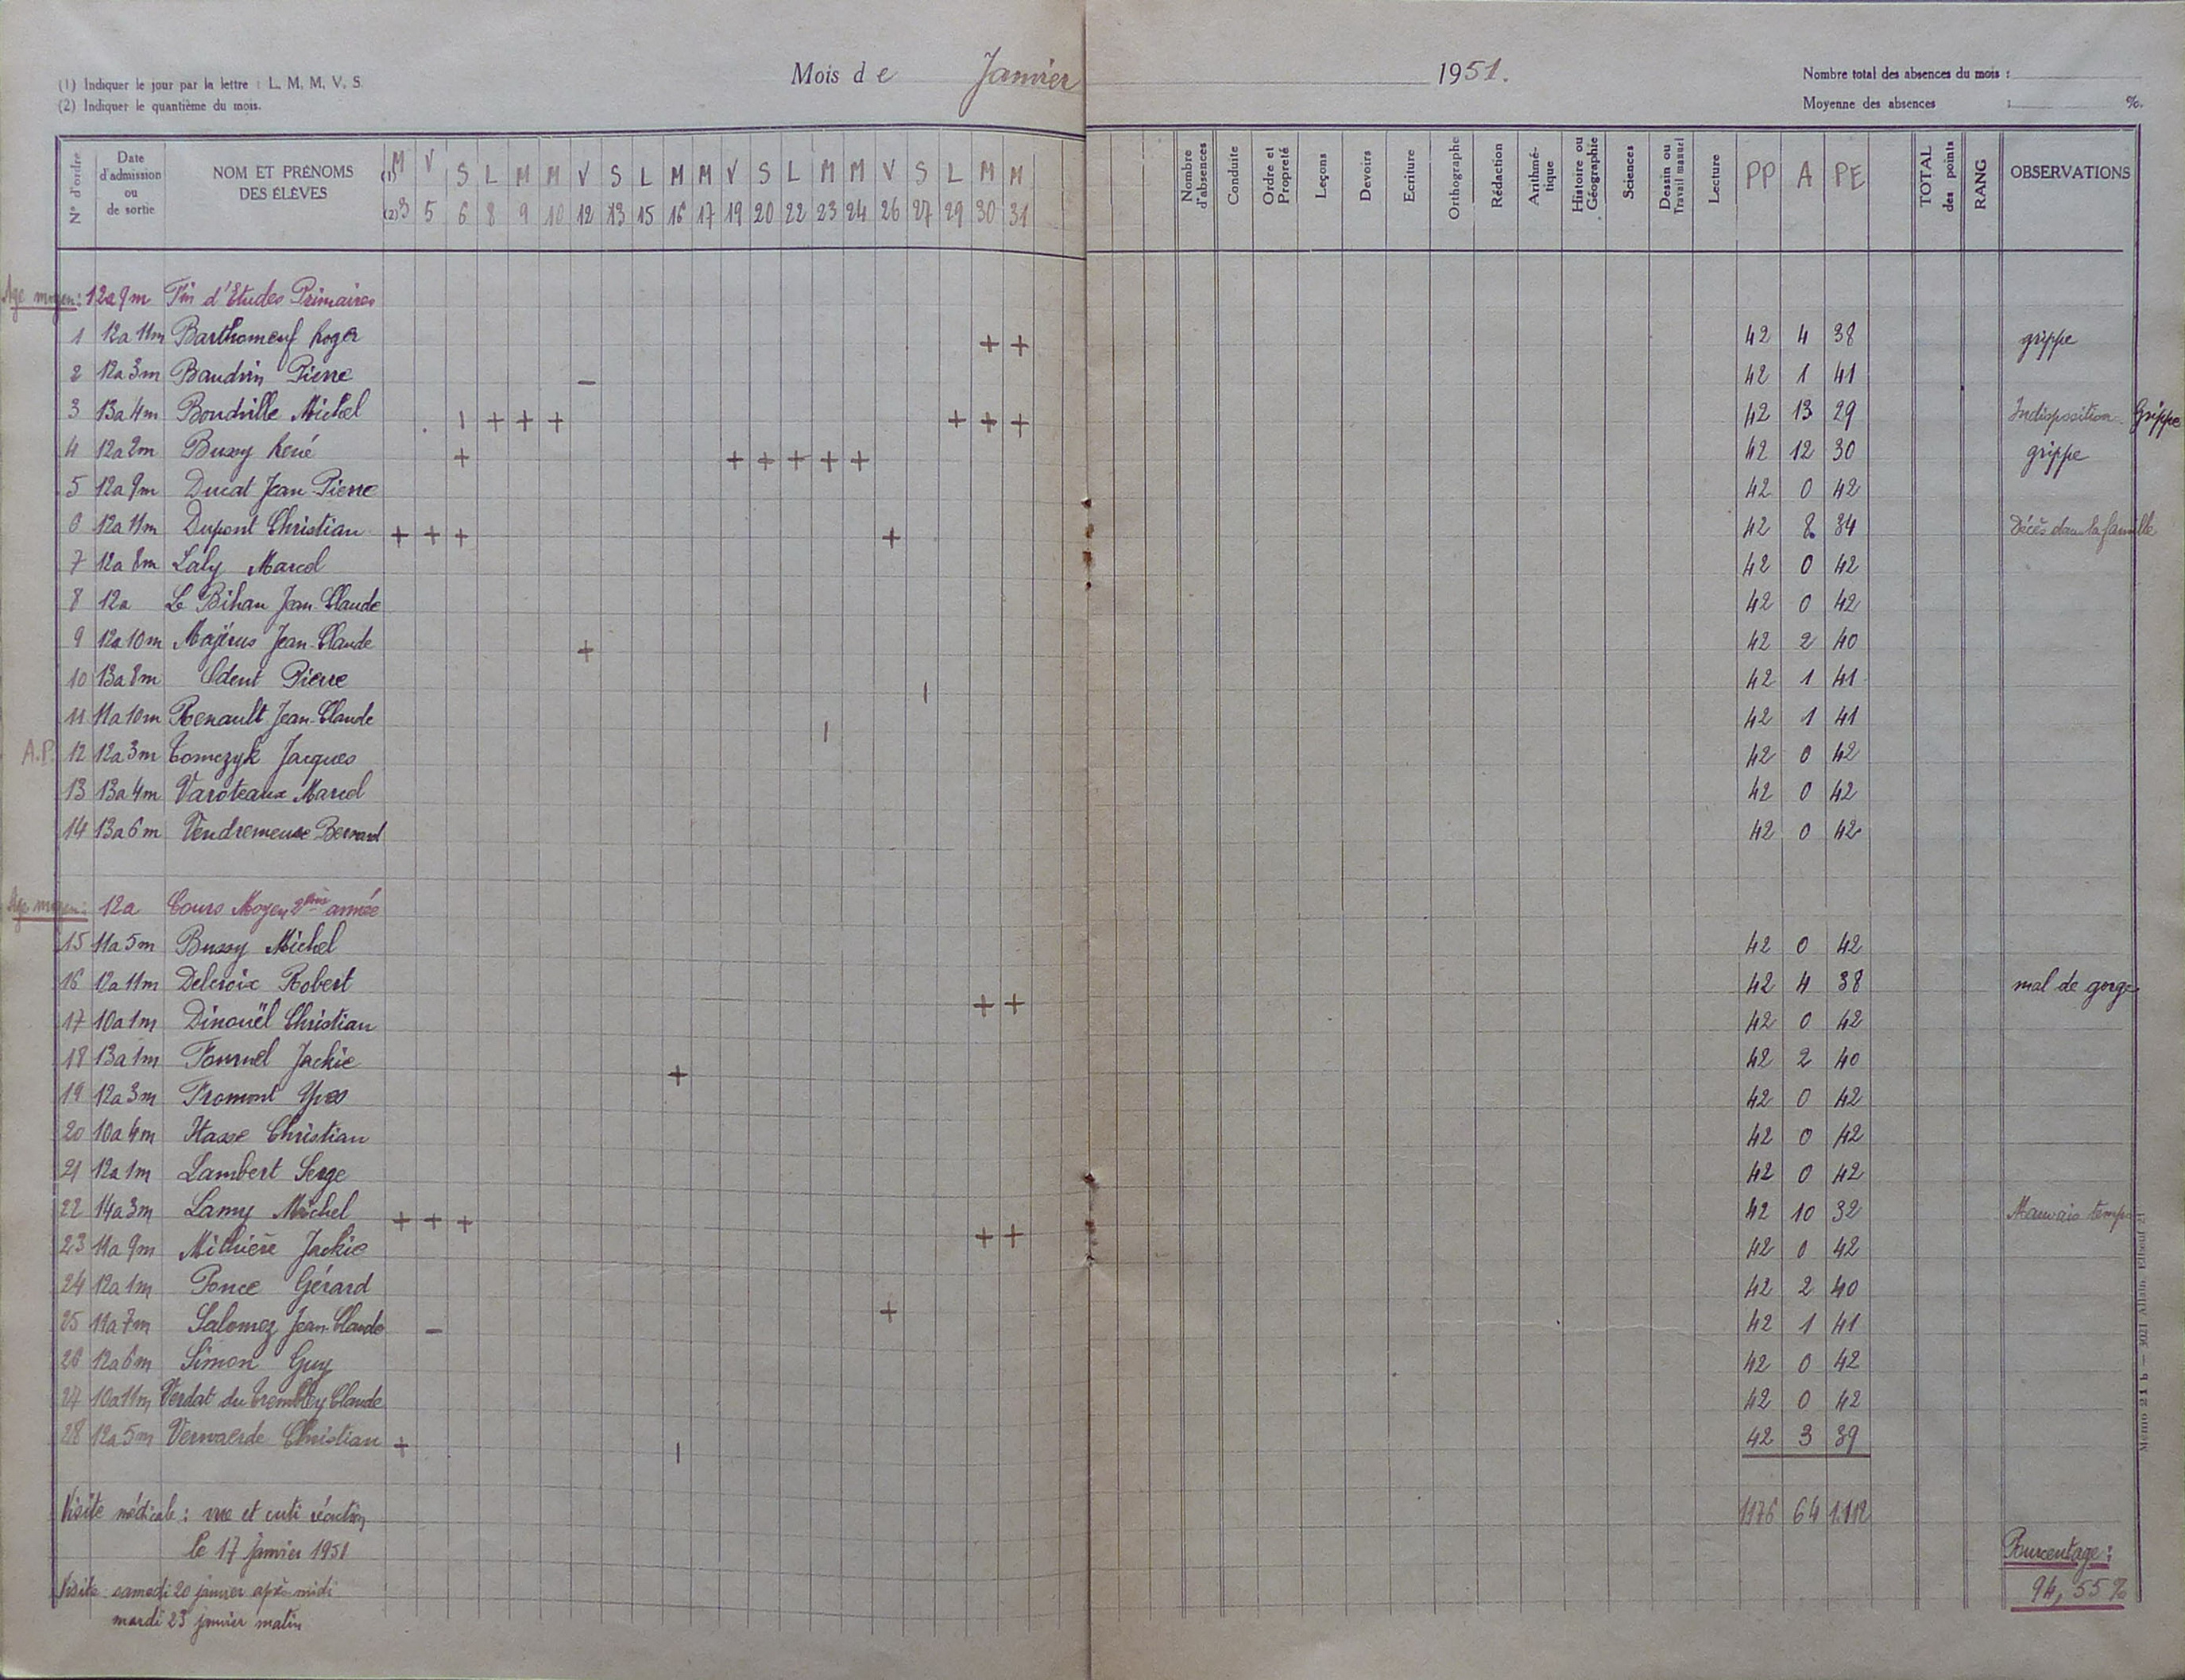 (1) Indiquer le jour par la lettre : L. M. M. V. S.
(2) Indiquer le quantième du mois.
Mois de Janvier 1951.
Nombre total des absences du mois :
Moyenne des absences : %.
N° d'ordre | Date d'admission ou de sortie | NOM ET PRÉNOMS DES ÉLÈVES | (1) M V S L M M V S L M M V S L M M V S L M M | Nombre d'absences | Conduite | Ordre et Propreté | Leçons | Devoirs | Ecriture | Orthographe | Rédaction | Arithmé-tique | Histoire ou Géographie | Sciences | Dessin ou Travail manuel | Lecture | PP | A | PE | TOTAL des points | RANG | OBSERVATIONS
(2) 3 5 6 8 9 10 12 13 15 16 17 19 20 22 23 24 26 27 29 30 31
Age moyen : 12a 9m Fin d'Etudes Primaires
1 12a 11m Barthomeuf Roger + + 42 4 38 grippe
2 12a 3m Baudrin Pierre – 42 1 41
3 13a 4m Boudville Michel | + + + + + + 42 13 29 Indisposition - Grippe
4 12a 2m Bussy René + + + + + + 42 12 30 grippe
5 12a 9m Ducat Jean-Pierre 42 0 42
6 12a 11m Dupont Christian + + + + 42 8 34 Décès dans la famille
7 12a 8m Laly Marcel 42 0 42
8 12a Le Bihan Jean-Claude 42 0 42
9 12a 10m Majérus Jean-Claude + 42 2 40
10 13a 8m Odent Pierre | 42 1 41
11 11a 10m Renault Jean-Claude | 42 1 41
A.P. 12 12a 3m Tomczyk Jacques 42 0 42
13 13a 4m Varoteaux Marcel 42 0 42
14 13a 6m Vendremeuse Bernard 42 0 42
Age moyen : 12a Cours Moyen 2ème année
15 11a 5m Bussy Michel 42 0 42
16 12a 11m Delcroix Robert + + 42 4 38 mal de gorge
17 10a 1m Dinouël Christian 42 0 42
18 13a 1m Fournel Jackie + 42 2 40
19 12a 3m Fromont Yves 42 0 42
20 10a 4m Hasse Christian 42 0 42
21 12a 1m Lambert Serge 42 0 42
22 14a 3m Lamy Michel + + + + + 42 10 32 Mauvais temps
23 11a 9m Mithière Jackie 42 0 42
24 12a 1m Ponce Gérard + 42 2 40
25 11a 7m Salomez Jean-Claude – 42 1 41
26 12a 6m Simon Guy 42 0 42
27 10a 11m Verdat du Trembley Claude 42 0 42
28 12a 5m Vervaerde Christian + | 42 3 39
Visite médicale : vue et cuti réaction 1176 64 1.112
le 17 Janvier 1951
Pourcentage :
94,55%
Visite samedi 20 janvier après-midi
mardi 23 janvier matin
Mémo 21 b — 3021 Allain, Elbeuf 21